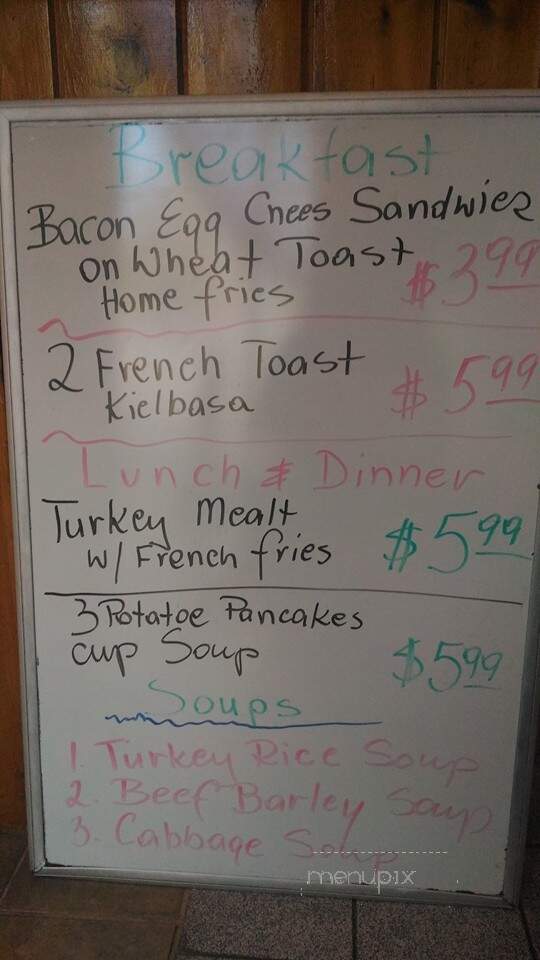 Breakfast
Bacon Egg Chees Sandwiez
on Wheat Toast $3.99
Home fries
2 French Toast
Kielbasa $5.99
Lunch & Dinner
Turkey Mealt
w/ French fries $5.99
3 Potatoe Pancakes
cup Soup $5.99
Soups
1. Turkey Rice Soup
2. Beef Barley Soup
3. Cabbage Soup
menupix